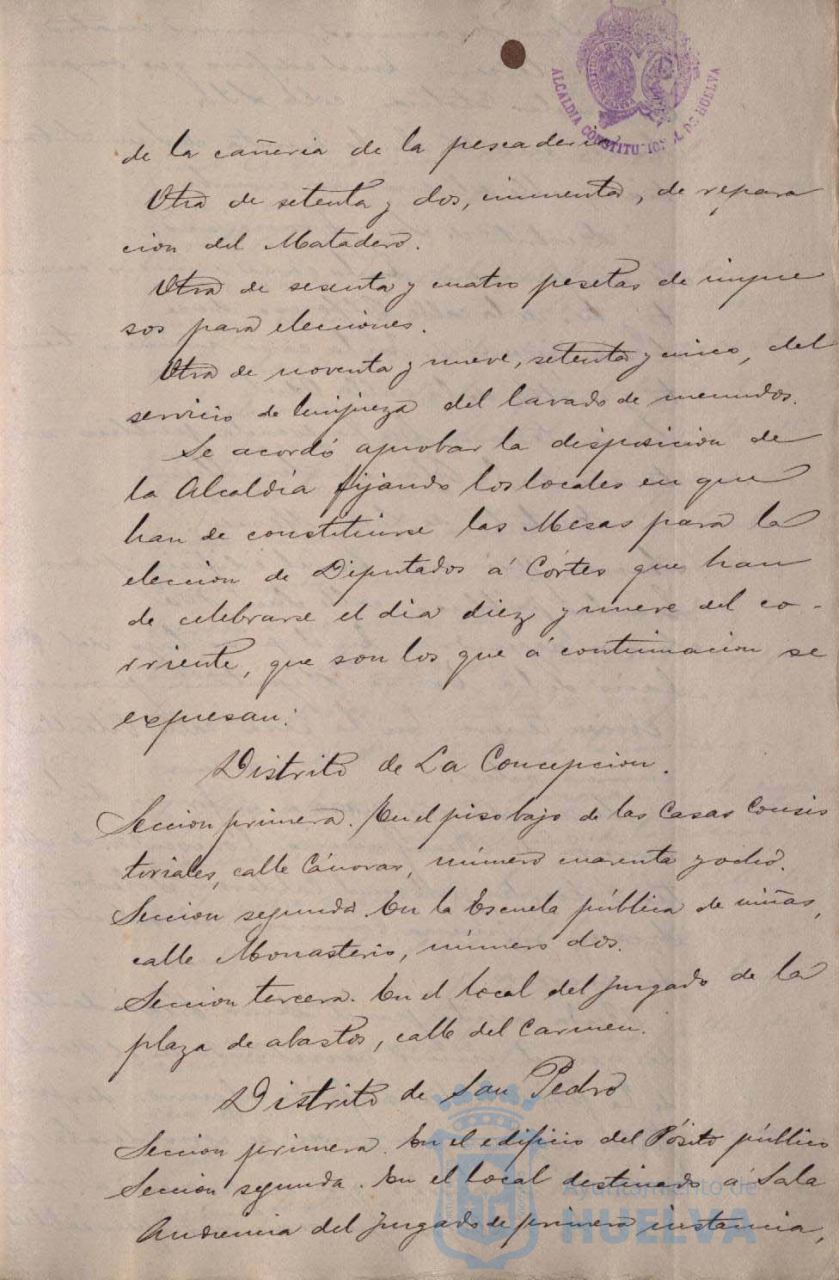 ALCALDIA CONSTITUCIONAL DE HUELVA
de la cañeria de la pescaderia
Otra de setenta y dos, cincuenta, de repara
cion del Matadero.
Otra de sesenta y cuatro pesetas de impre
sos para elecciones.
Otra de noventa y nueve, setenta y cinco, del
servicio de limpieza del lavado de menudos.
Se acordó aprobar la disposicion de
la Alcaldía fijando los locales en que
han de constituirse las Mesas para la
eleccion de Diputados á Córtes que han
de celebrarse el dia diez y nueve del co-
rriente, que son los que á continuacion se
expresan:
Distrito de La Concepcion.
Seccion primera. En el piso bajo de las Casas Consis
toriales, calle Cánovas, número cuarenta y ocho.
Seccion segunda. En la Escuela pública de niñas,
calle Monasterio, número dos.
Seccion tercera. En el local del juzgado de la
plaza de abastos, calle del Carmen.
Distrito de San Pedro
Seccion primera. En el edificio del Pósito público
Seccion segunda. En el local destinado á Sala
Audiencia del juzgado de primera instancia,
Ayuntamiento de
HUELVA